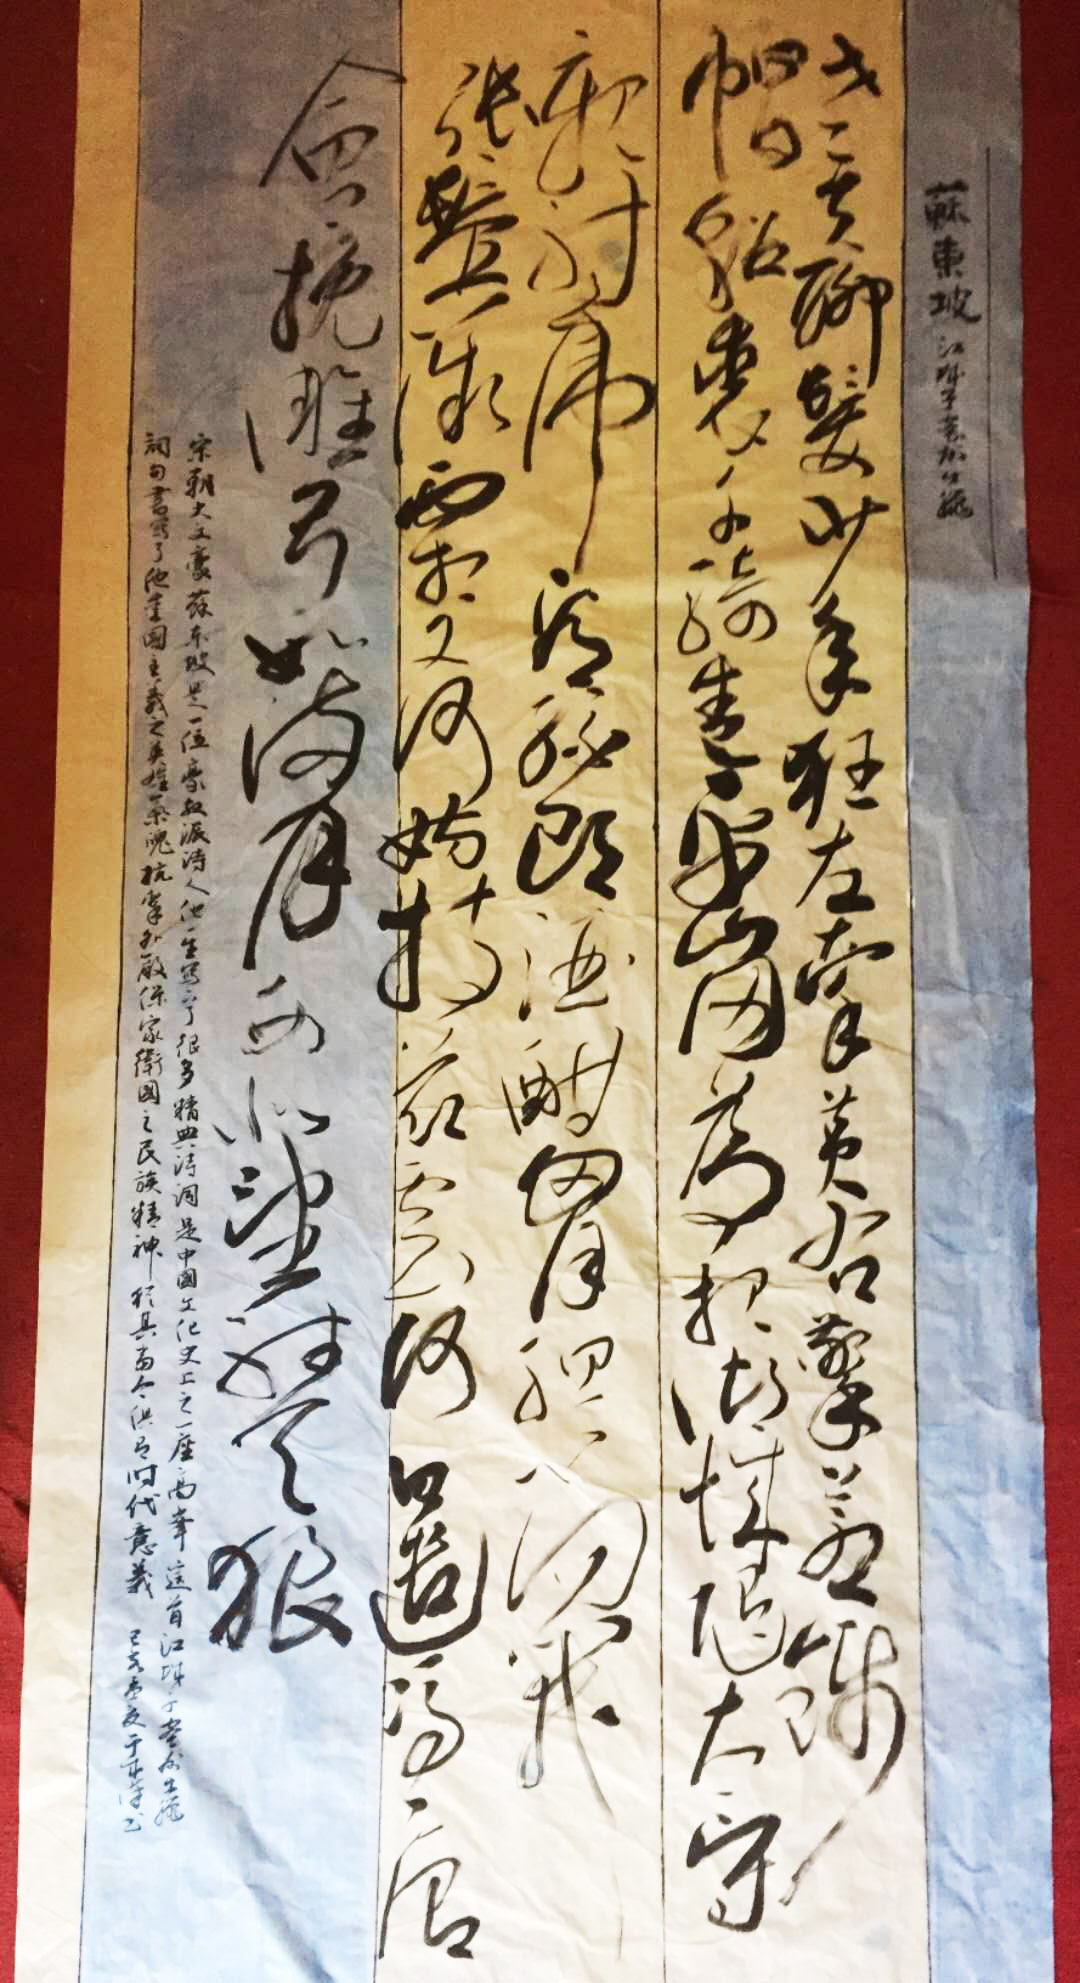 蘇東坡 江城子密州出獵
老夫聊發少年狂左牽黃右擎蒼錦
帽貂裘千騎卷平岡為報傾城隨太守
親射虎看孫郎酒酣胸膽尚開
張鬢微霜又何妨持節雲中何日遣馮唐
會挽雕弓如滿月西北望射天狼
宋朝大文豪蘇東坡是一位豪放派詩人他一生寫了很多精典詩詞是中國文化史上之一座高峯這首江城子密州出獵
詞句書寫了他愛國主義之英雄氣魄抗擊外敵保家衛國之民族精神 當今俱有时代意義 己亥孟夏于